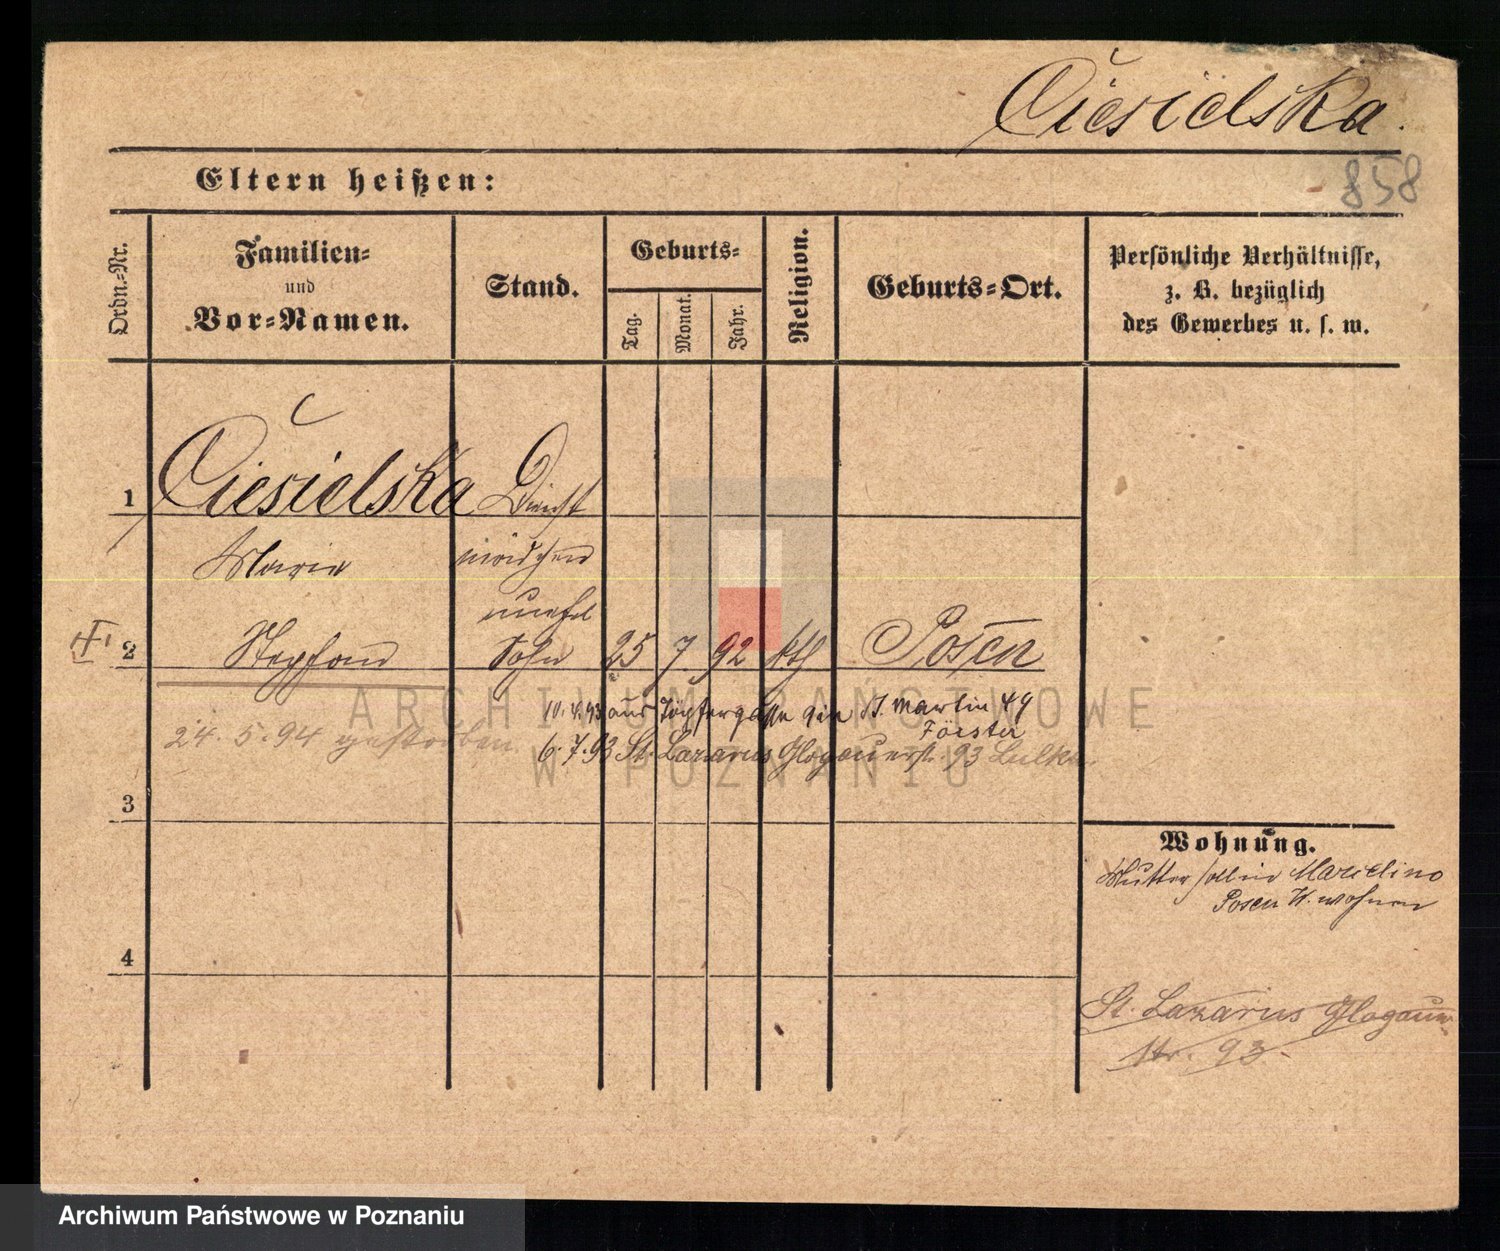 Ciesielska.
858
Eltern heißen:
Ordn.-Nr.
Familien-
und
Vor-Namen.
Stand.
Geburts-
Tag.
Monat.
Jahr.
Religion.
Geburts-Ort.
Persönliche Verhältnisse,
z. B. bezüglich
des Gewerbes u. s. w.
1 Ciesielska Dienst
Marie mädchen
unehel
2 Stephan Sohn 25 7 92 kth Posen
93 aus Töpfergasse St. Martin 49
Förster
24.5.94 gestorben.
6.7.93 St. Lazarus Glogauerst. 93
3
Wohnung.
Mutter
Posen wohnen
4
St. Lazarus Glogauer
str. 93.
ARCHIWUM PAŃSTWOWE
W POZNANIU
Archiwum Państwowe w Poznaniu